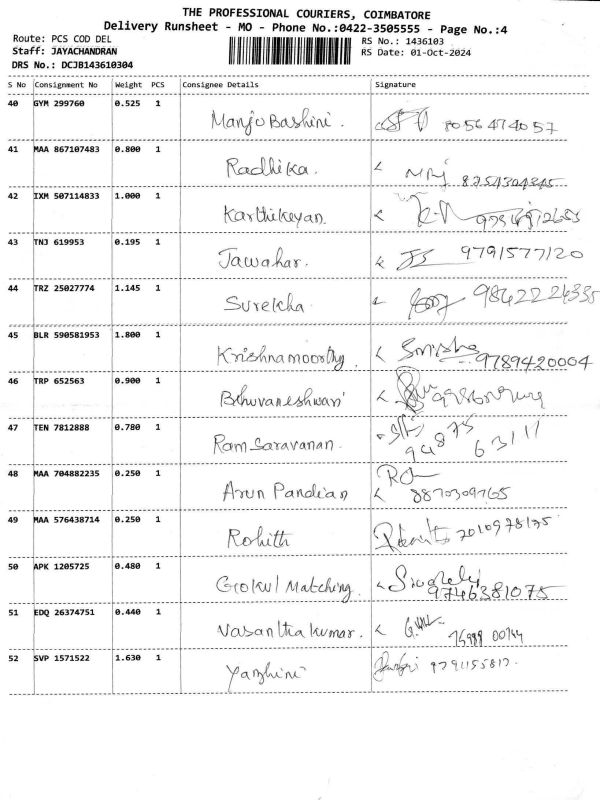 THE PROFESSIONAL COURIERS, COIMBATORE
Delivery Runsheet - MO - Phone No.:0422-3505555 - Page No.:4
Route: PCS COD DEL RS No.: 1436103
Staff: JAYACHANDRAN RS Date: 01-Oct-2024
DRS No.: DCJB143610304
S No Consignment No Weight PCS Consignee Details Signature
40 GYM 299760 0.525 1 Manju Bashini. 8056474057
41 MAA 867107483 0.800 1 Radhika. 8754304345
42 IXM 507114833 1.000 1 Karthikeyan
43 TNJ 619953 0.195 1 Jawahar. 9791577120
44 TRZ 25027774 1.145 1 Surekha 9842224335
45 BLR 590581953 1.800 1 Krishnamoorthy. 9789420004
46 TRP 652563 0.900 1 Bhuvaneshwari
47 TEN 7812888 0.780 1 Ram Saravanan. 94875 63111
48 MAA 704882235 0.250 1 Arun Pandian 8870309765
49 MAA 576438714 0.250 1 Rohith 7010978135
50 APK 1205725 0.480 1 Gokul Matching. 9746381075
51 EDQ 26374751 0.440 1 Vasantha kumar.
52 SVP 1571522 1.630 1 Yazhini 9791155817.